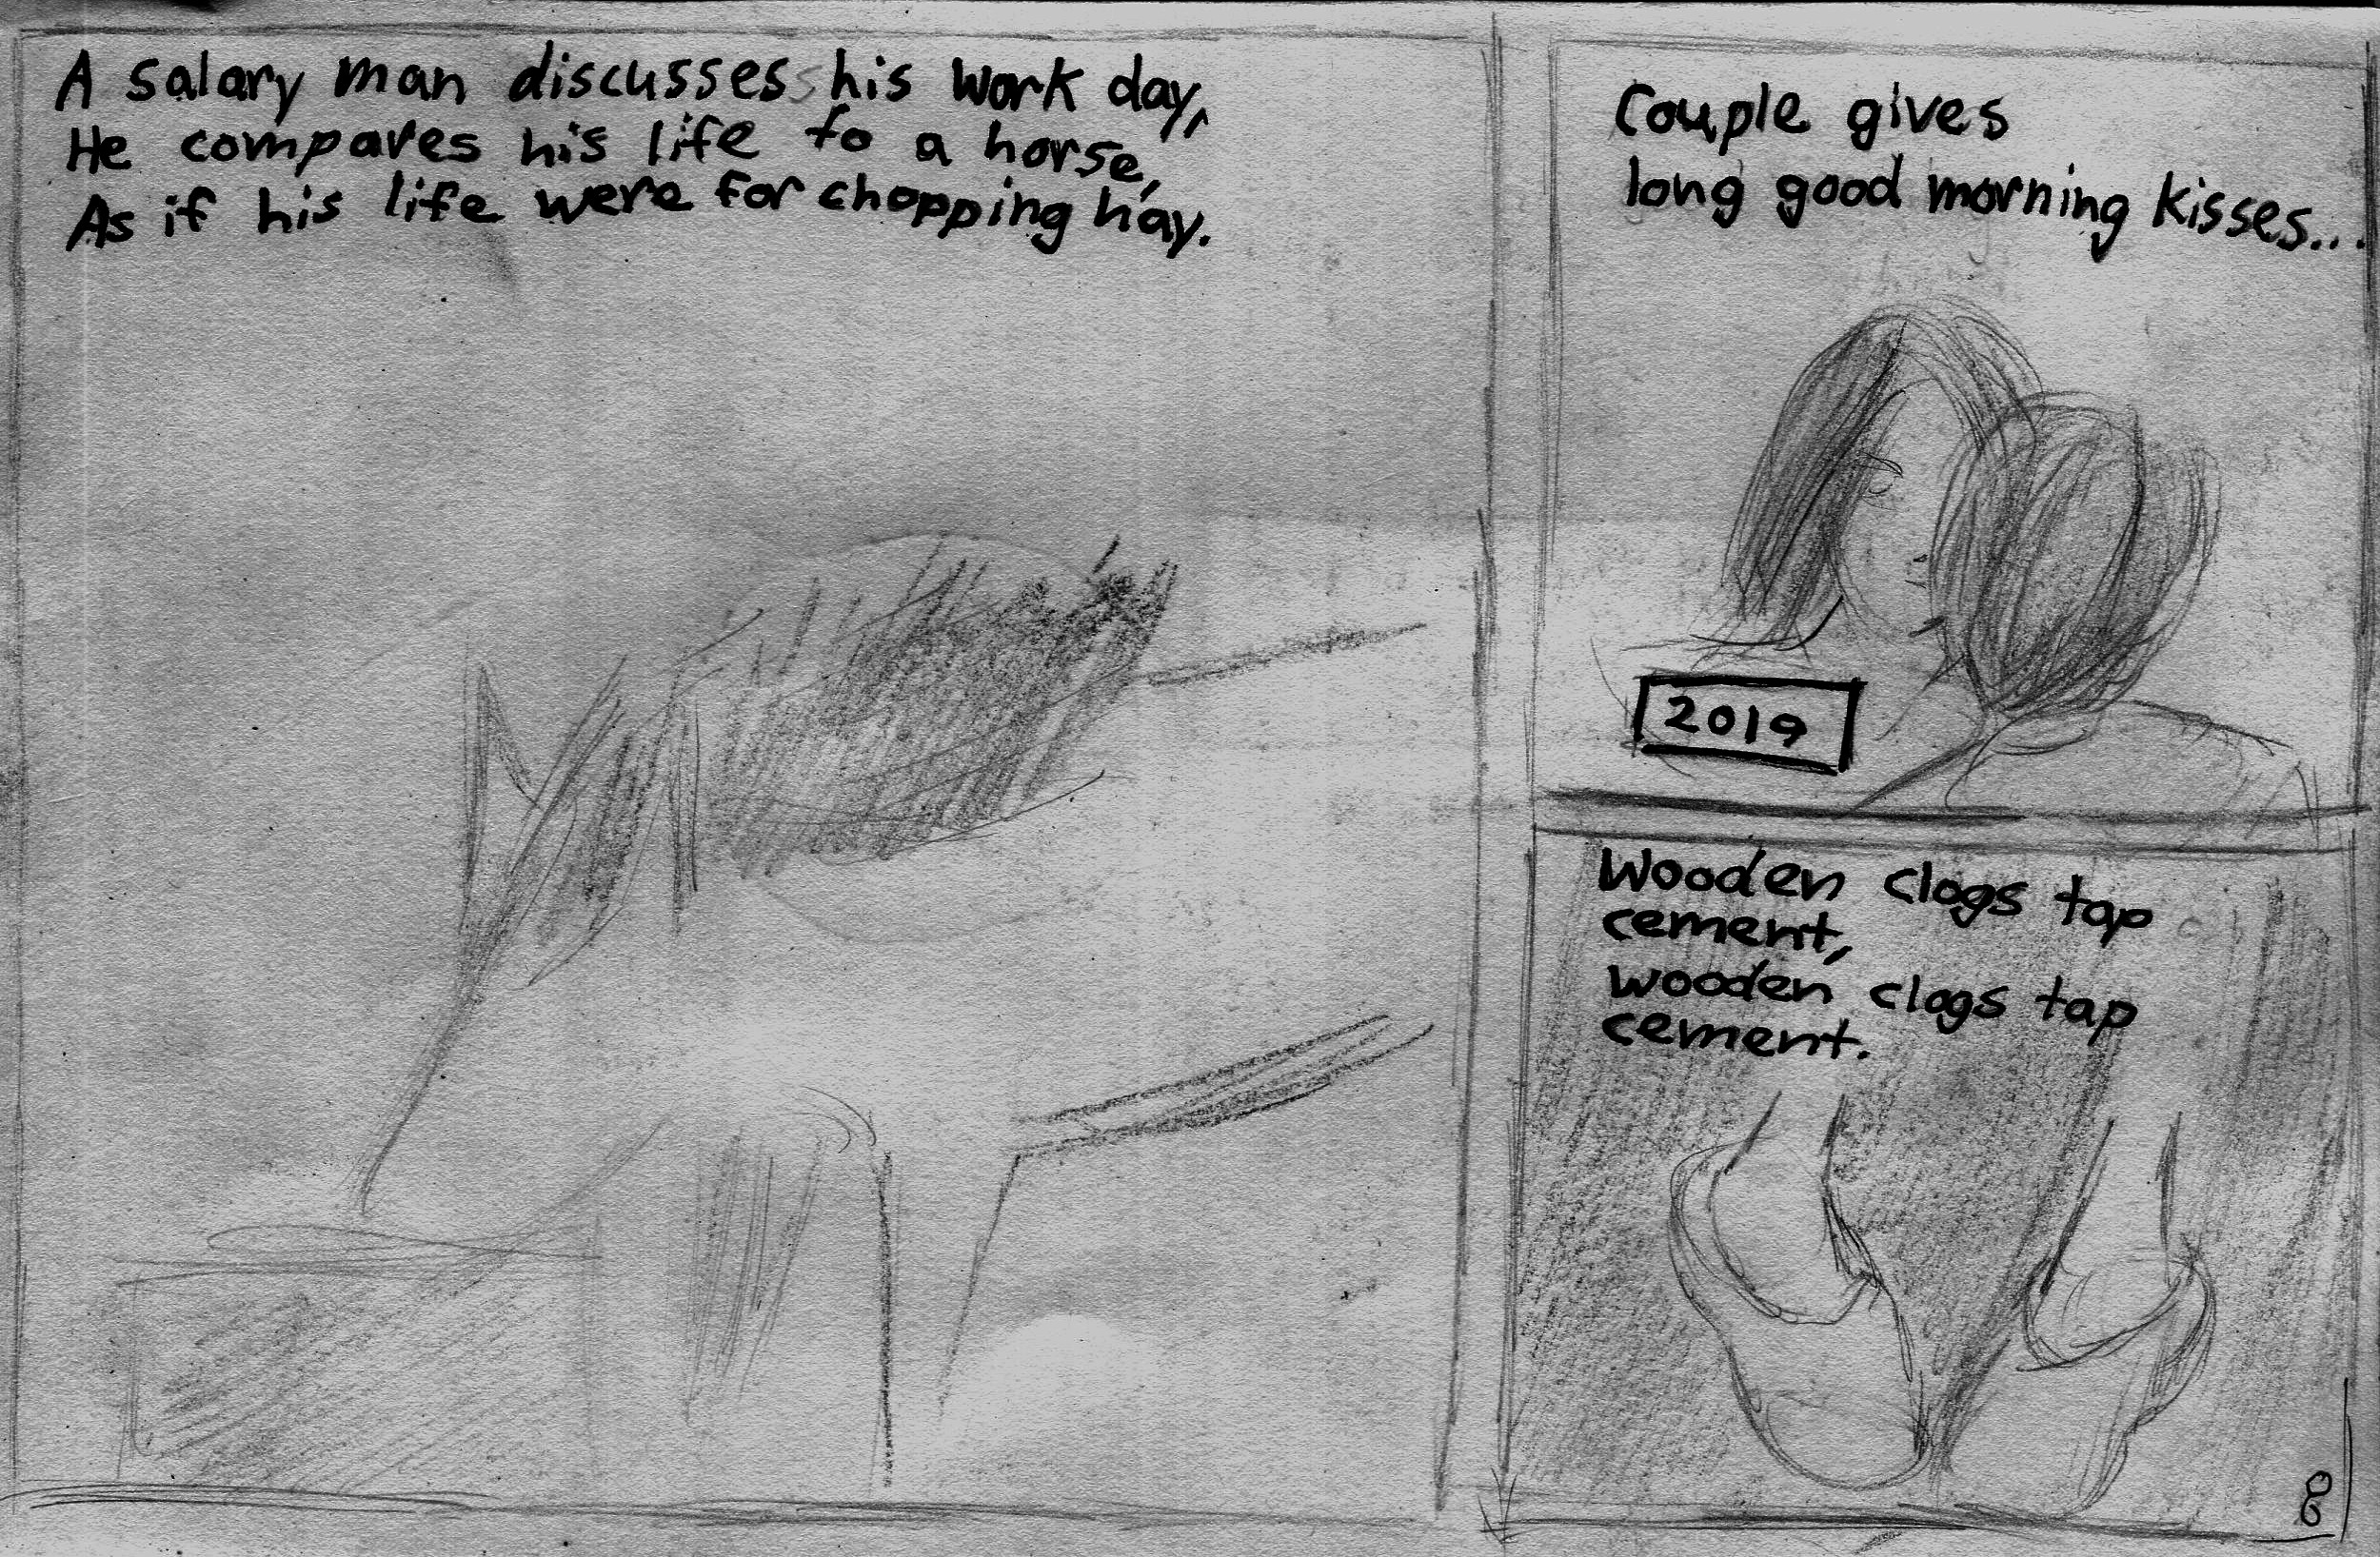 A salary man discusses his work day,
He compares his life to a horse,
As if his life were for chopping hay.
Couple gives
long good morning kisses...
2019
Wooden clogs tap
cement,
wooden clogs tap
cement.
8